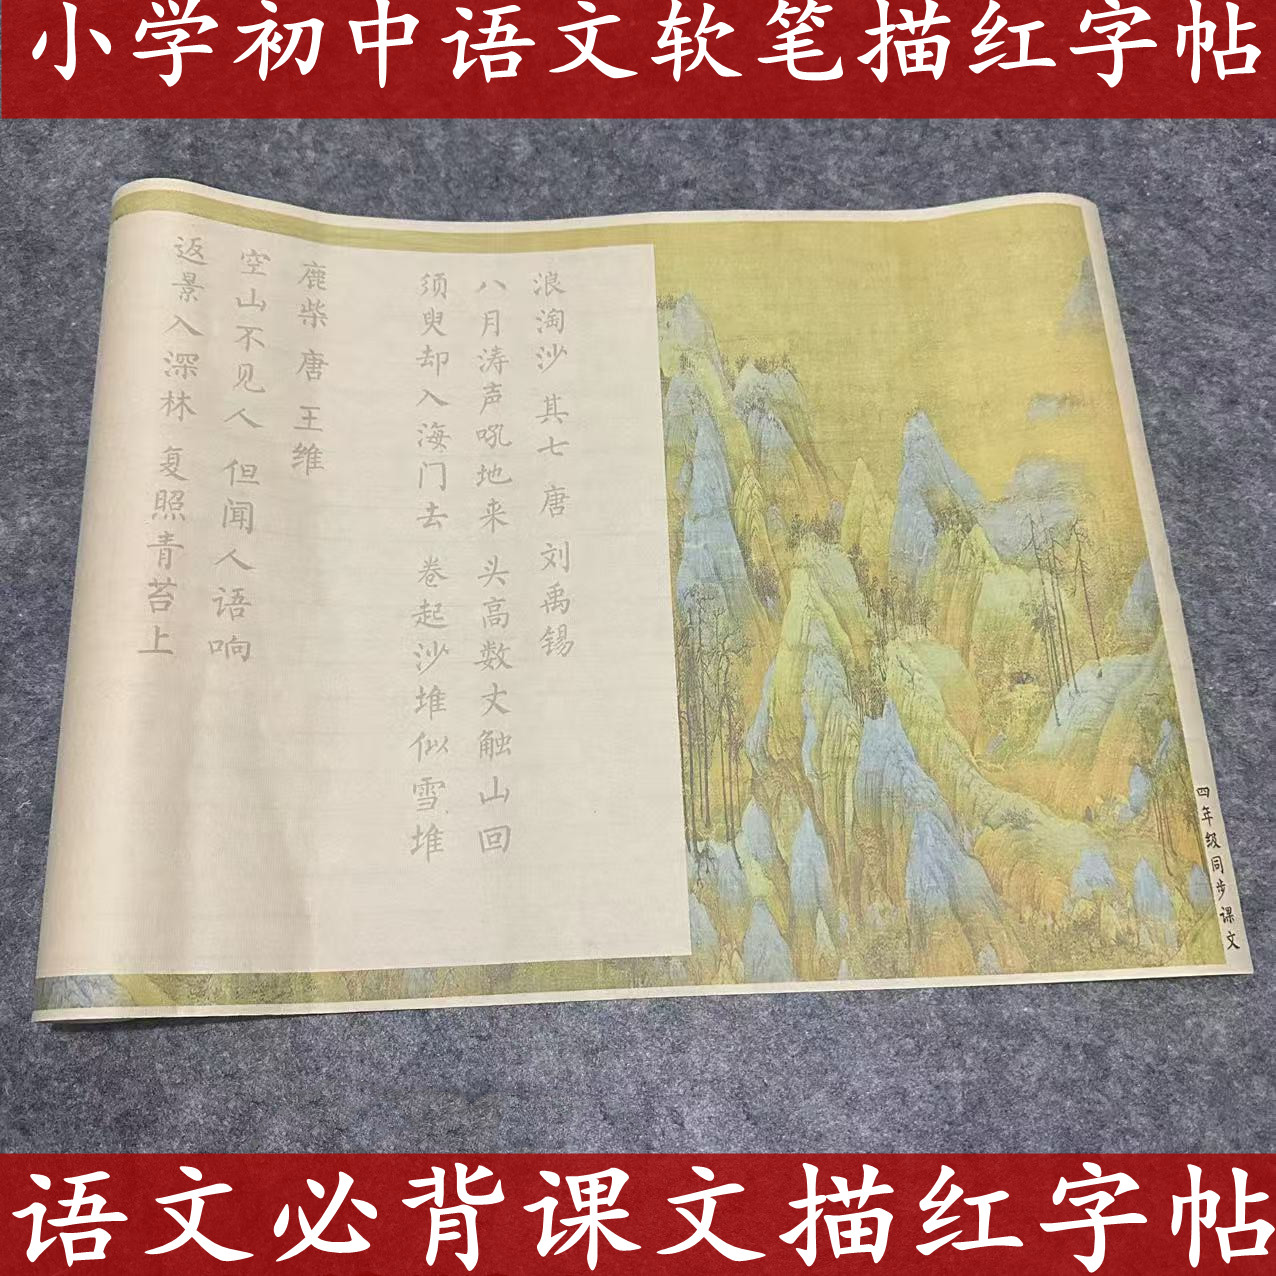 小学初中语文软笔描红字帖
四年级同步课文
浪淘沙 其七 唐 刘禹锡
八月涛声吼地来 头高数丈触山回
须臾却入海门去 卷起沙堆似雪堆
鹿柴 唐 王维
空山不见人 但闻人语响
返景入深林 复照青苔上
语文必背课文描红字帖